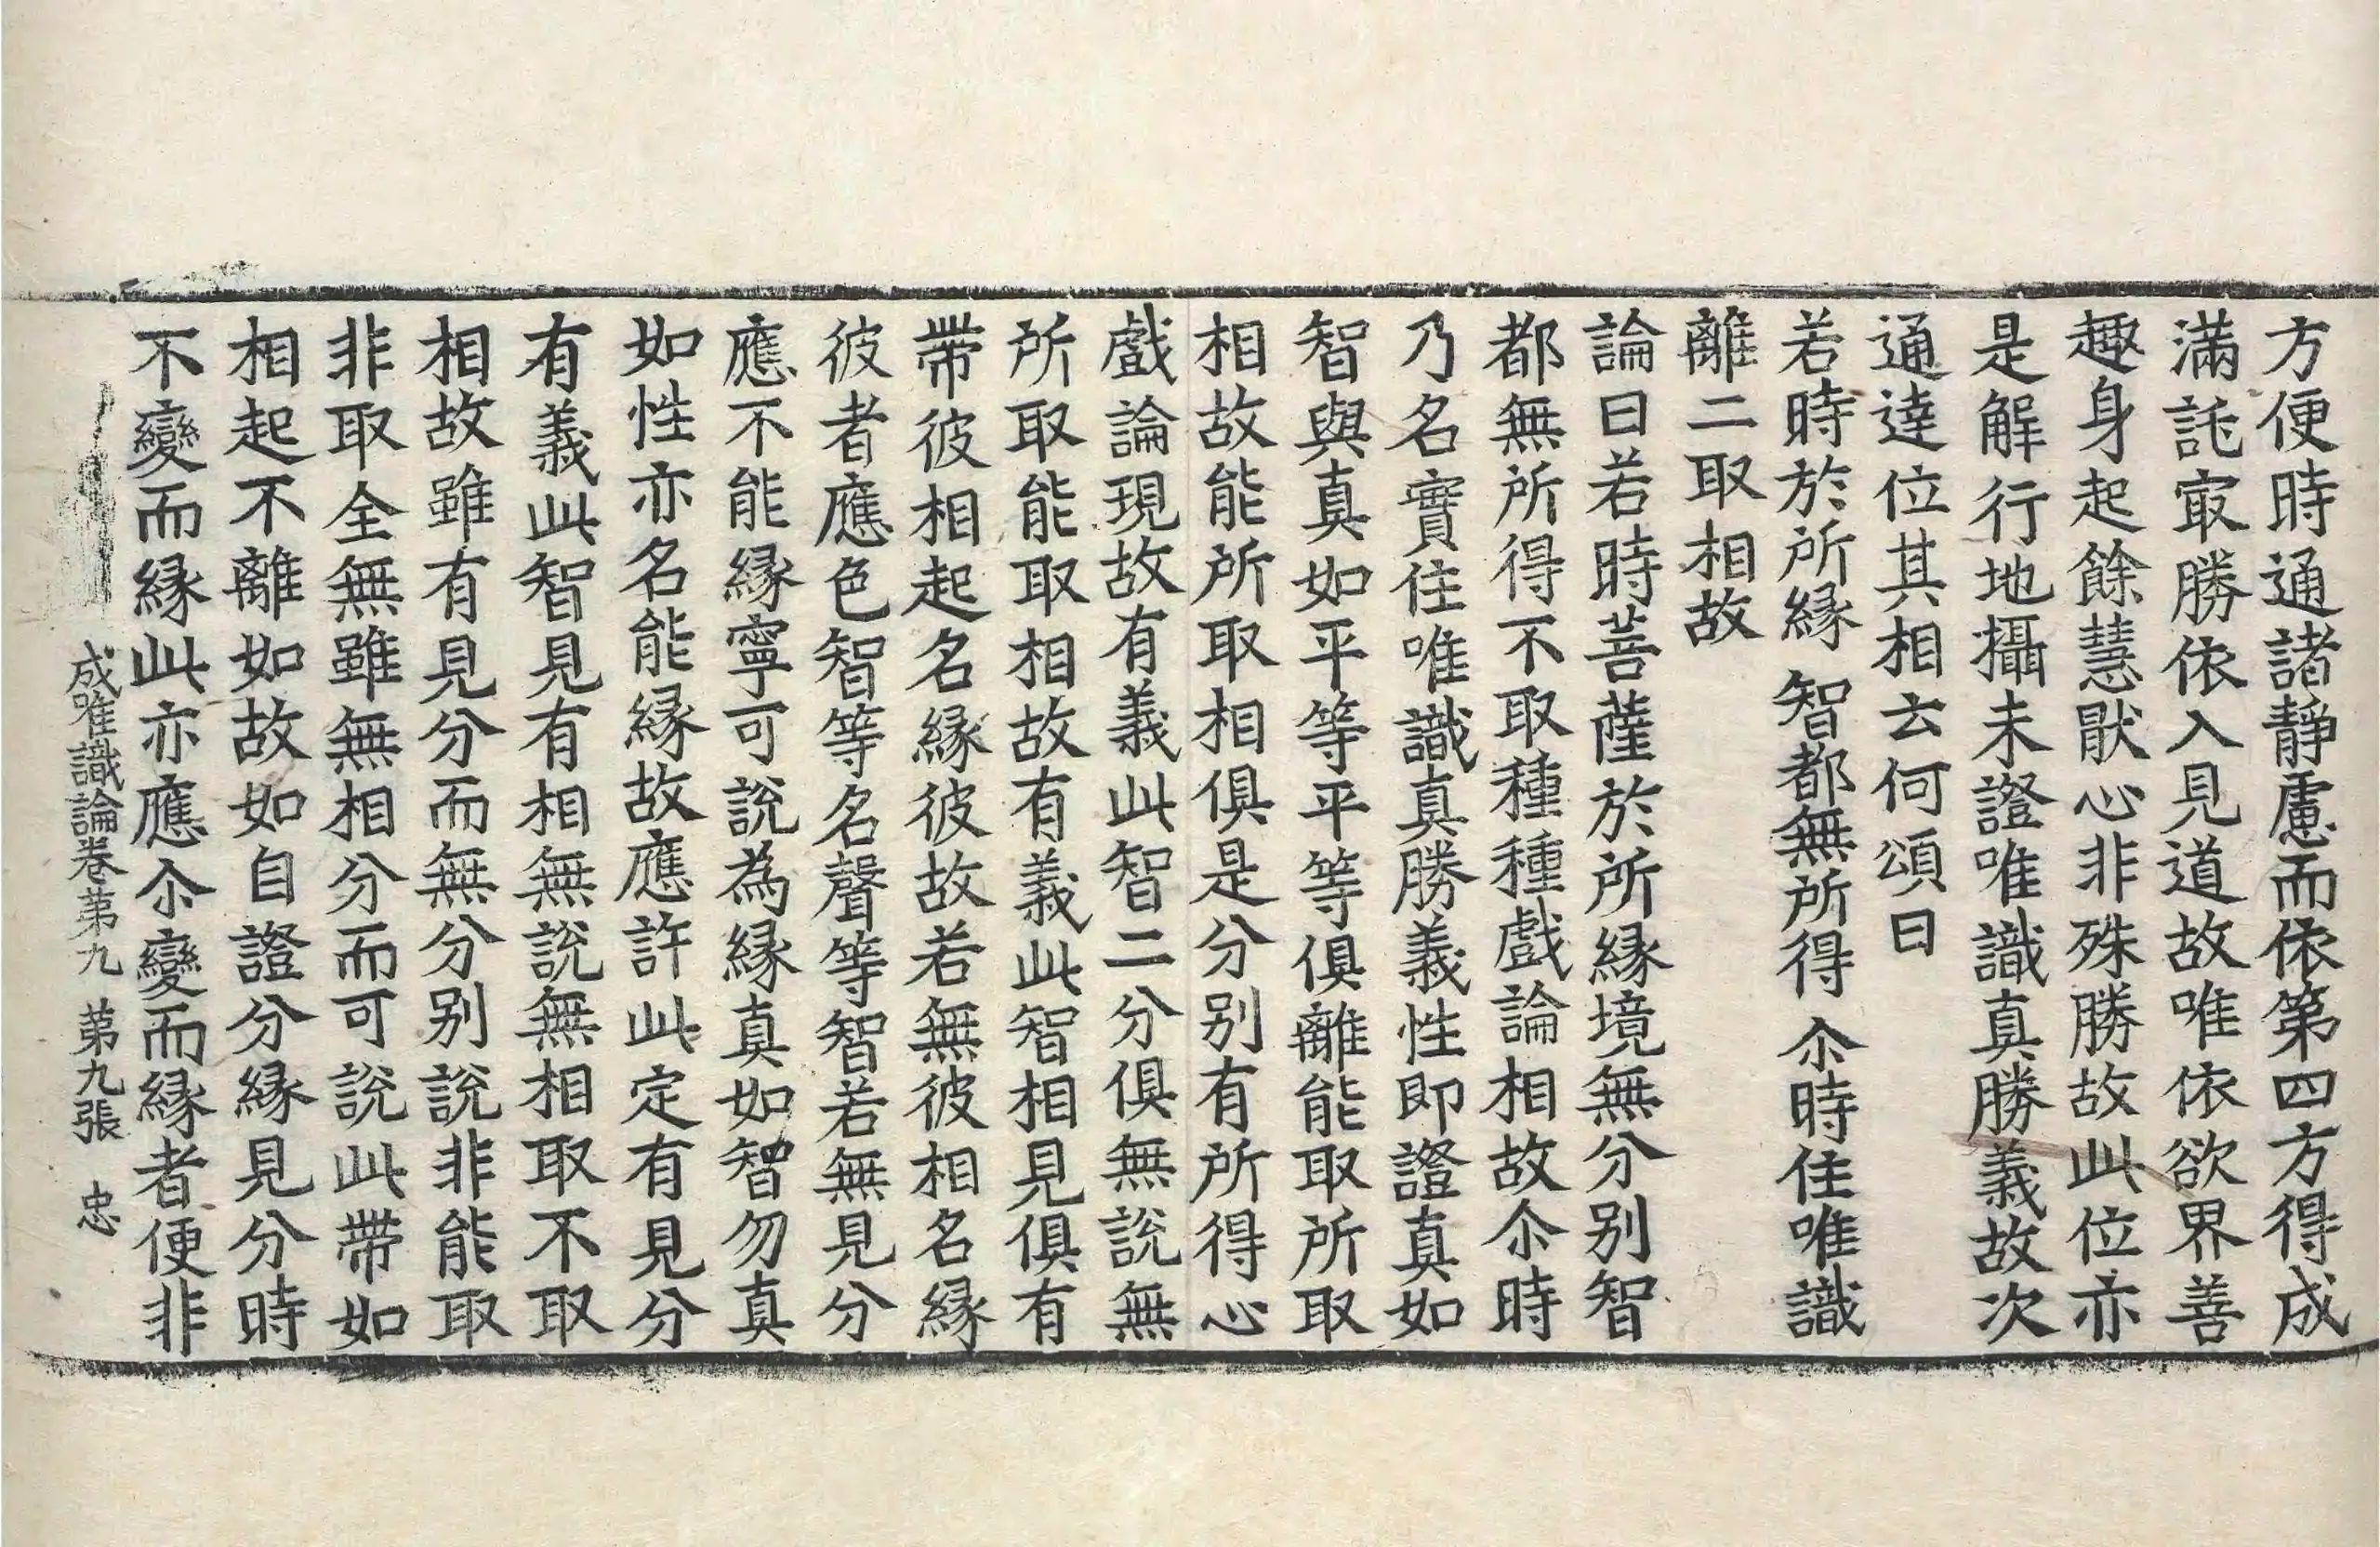 方便時通諸靜慮而依第四方得成
滿託㝡勝依入見道故唯依欲界善
趣身起餘慧猒心非殊勝故此位亦
是解行地攝未證唯識真勝義故次
通達位其相云何頌曰
若時於所緣 智都無所得 尒時住唯識
離二取相故
論曰若時菩薩於所緣境無分别智
都無所得不取種種戲論相故尒時
乃名實住唯識真勝義性即證真如
智與真如平等平等俱離能取所取
相故能所取相俱是分别有所得心
戲論現故有義此智二分俱無說無
所取能取相故有義此智相見俱有
帶彼相起名緣彼故若無彼相名緣
彼者應色智等名聲等智若無見分
應不能緣寧可說為緣真如智勿真
如性亦名能緣故應許此定有見分
有義此智見有相無說無相取不取
相故雖有見分而無分别說非能取
非取全無雖無相分而可說此帶如
相起不離如故如自證分緣見分時
不變而緣此亦應尒變而緣者便非
成唯識論卷苐九 苐九張 忠